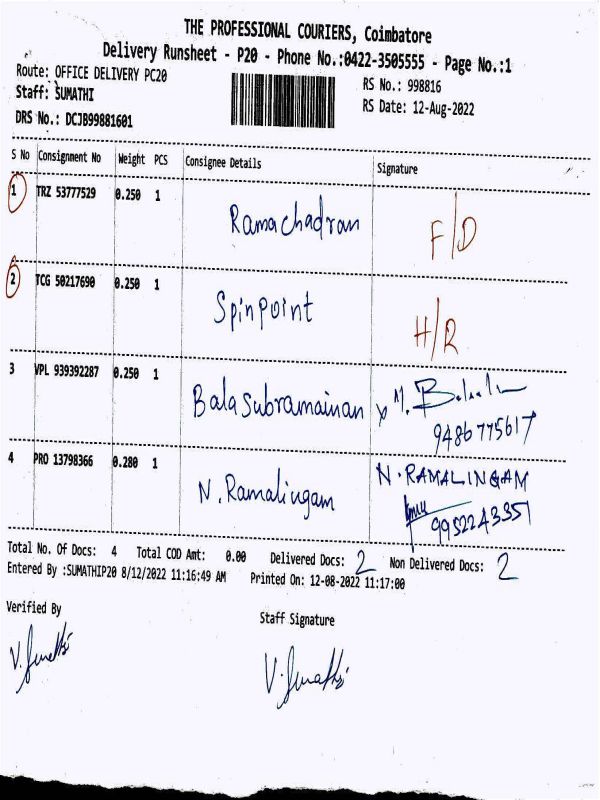 THE PROFESSIONAL COURIERS, Coimbatore
Delivery Runsheet - P20 - Phone No.:0422-3505555 - Page No.:1
Route: OFFICE DELIVERY PC20
RS No.: 998816
Staff: SUMATHI
RS Date: 12-Aug-2022
DRS No.: DCJB99881601
S No Consignment No Weight PCS Consignee Details Signature
1 TRZ 53777529 0.250 1 Ramachadran F/D
2 TCG 50217690 0.250 1 Spinpoint H/R
3 VPL 939392287 0.250 1 BalaSubramainan x M.
9486775617
4 PRO 13798366 0.280 1 N. Ramalingam N. RAMALINGAM
995224335
Total No. Of Docs: 4 Total COD Amt: 0.00 Delivered Docs: 2 Non Delivered Docs: 2
Entered By :SUMATHIP20 8/12/2022 11:16:49 AM Printed On: 12-08-2022 11:17:00
Verified By Staff Signature
V. Sumathi V. Sumathi